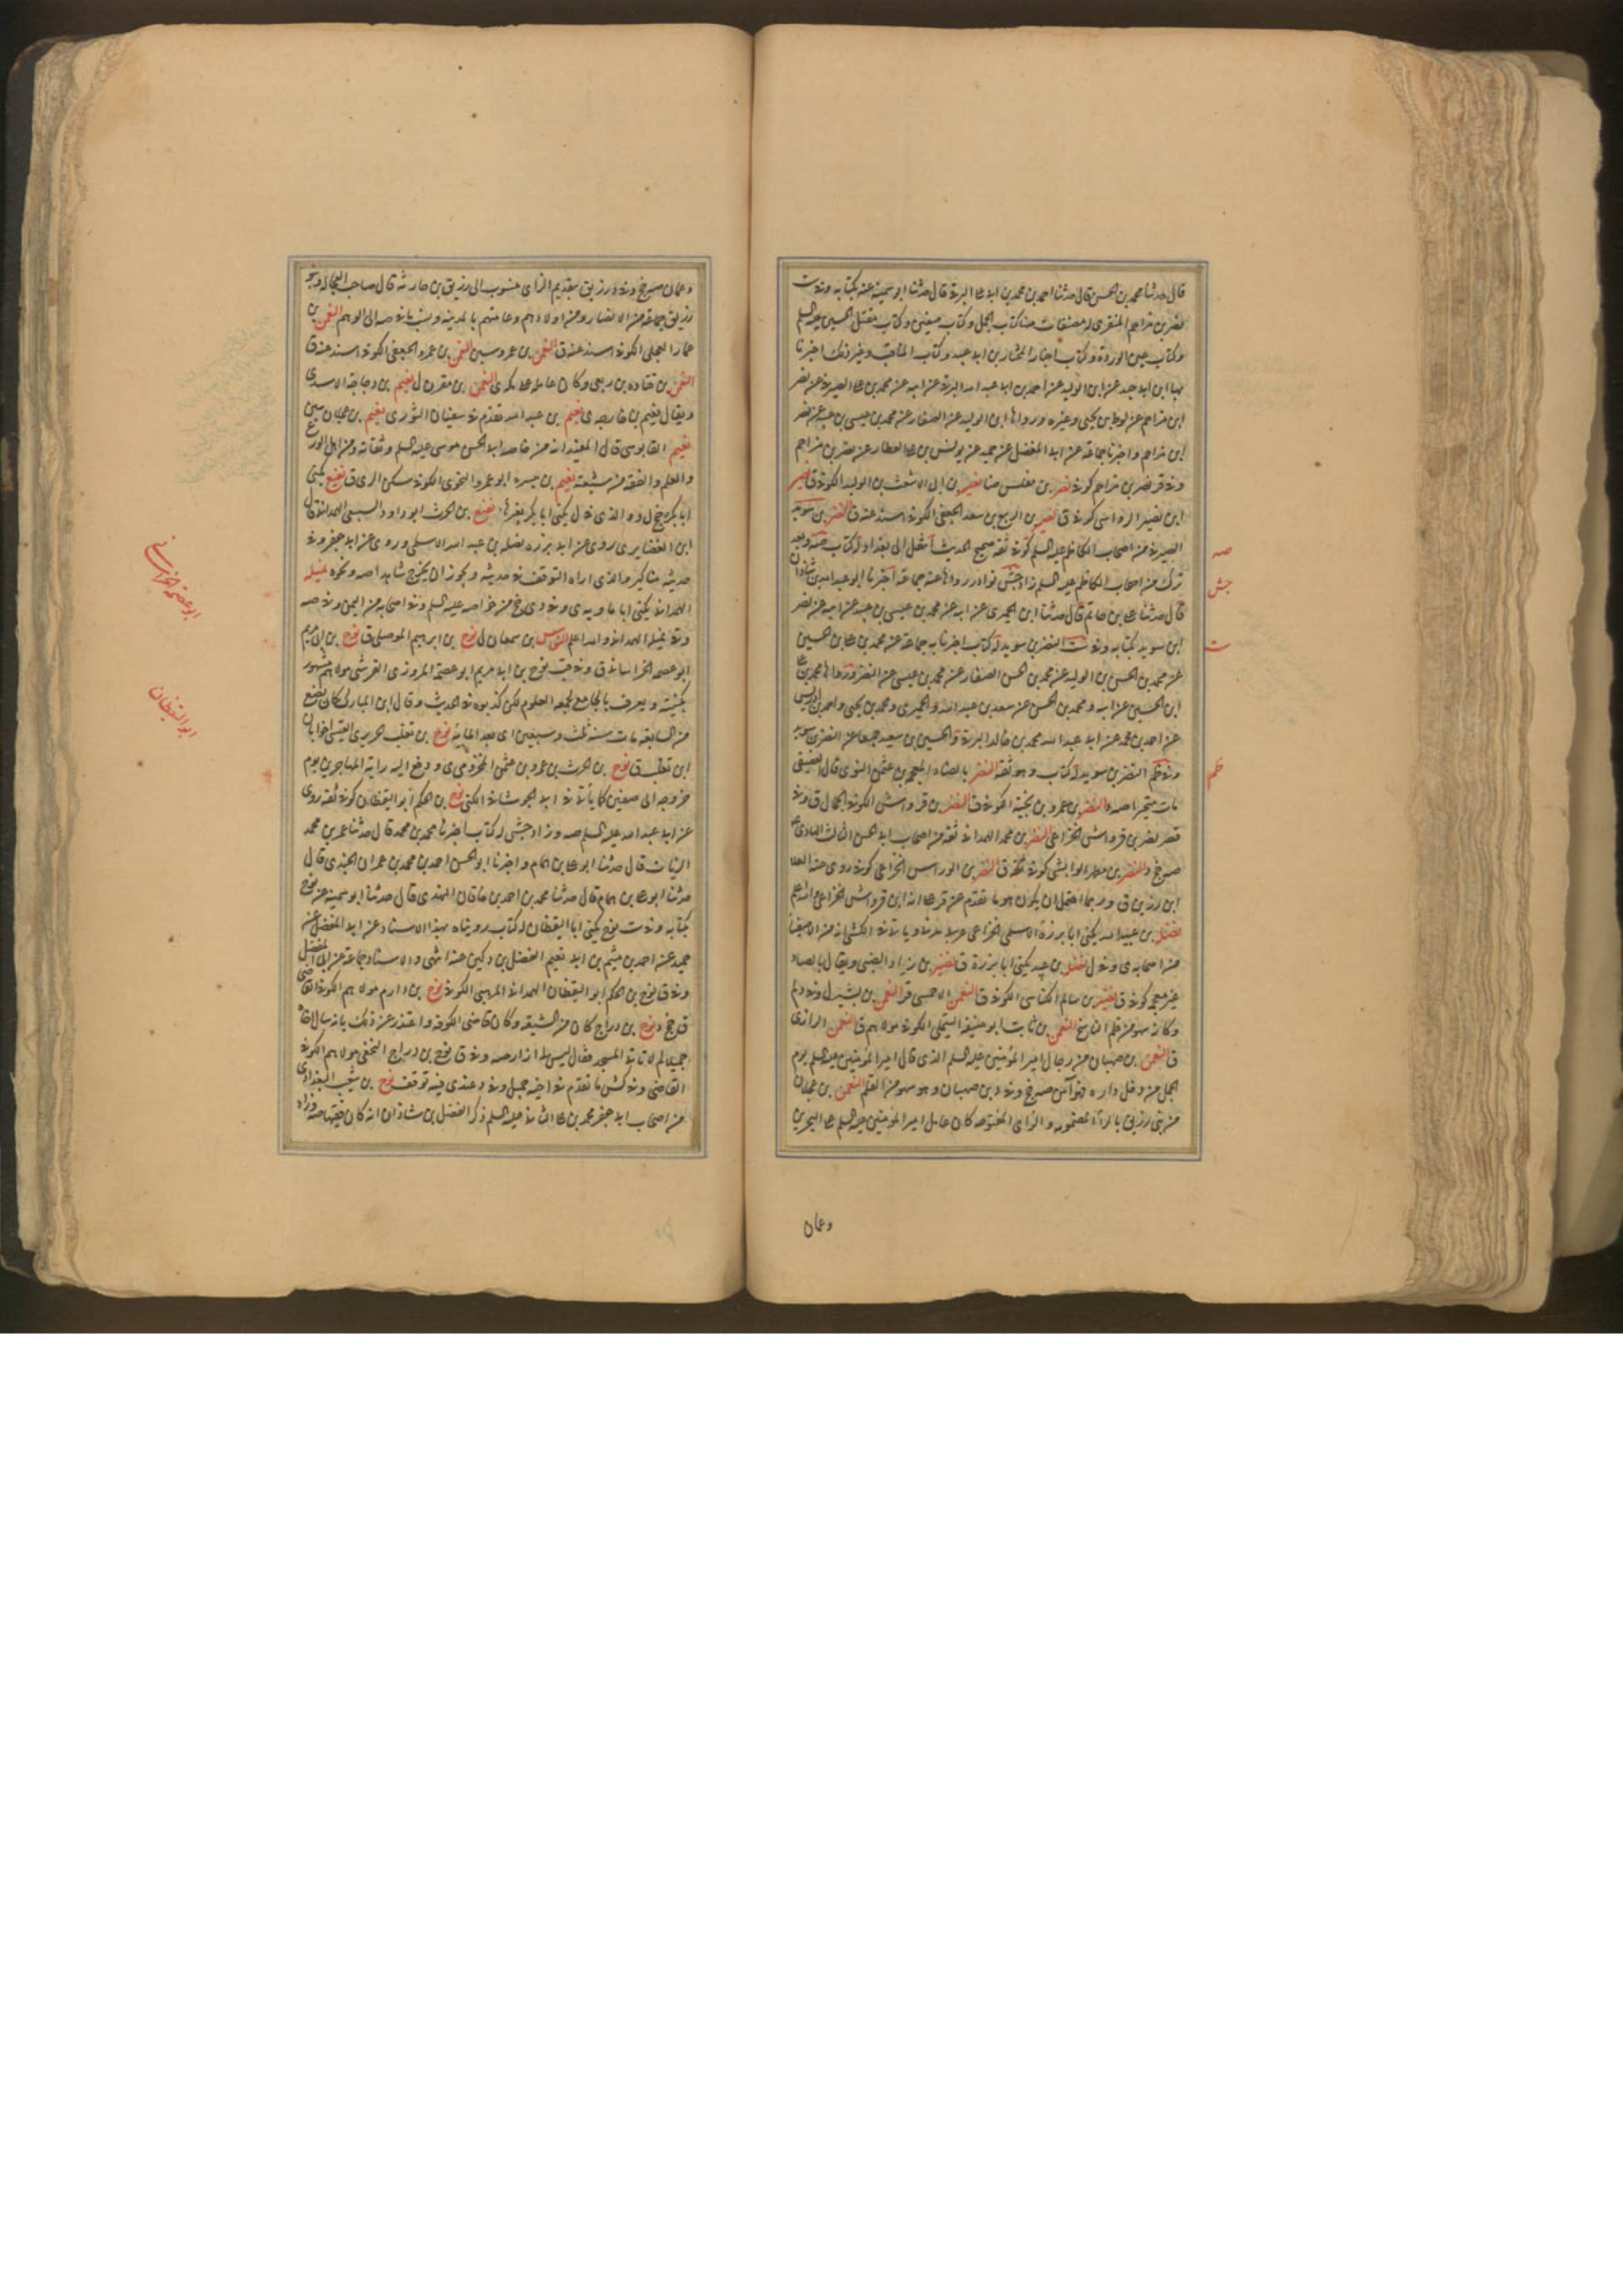 قال حدثنا محمد بن الحسن قال حدثنا احمد بن محمد بن ابي البرقي قال حدثنا ابو سمينة عنه بكتابه وفي ست
نصر بن مزاحم المنقري له مصنفات منها كتاب الجمل وكتاب صفين وكتاب مقتل الحسين عليه السلم
وكتاب عين الوردة وكتاب اخبار المختار بن ابي عبيد وكتاب المناقب وغير ذلك اخبرنا
بها ابن ابي جيد عن ابن الوليد عن احمد بن ابي عبد الله البرقي عن ابيه عن محمد بن علي الصيرفي عن نصر
ابن مزاحم عن لوط بن يحيى وغيره ورواها ابن الوليد عن الصفار عن محمد بن عيسى بن عبيد عن نصر
ابن مزاحم واخبرنا جماعة عن ابي المفضل عن حميد عن يونس بن علي العطار عن نصر بن مزاحم
وفي قر نصر بن مزاحم كوفي نصر بن مغلس نصير بن ابي الاشعث بن الوليد الكوفي ق نصير
ابن نصير الرواسي كوفي ق نصير بن الربيع بن سعد الجعفي الكوفي اسند عنه ق النضر بن سويد
الصيرفي من اصحاب الكاظم عليه السلم كوفي ثقة صحيح الحديث انتقل الى بغداد له كتاب
نوادر رواها عنه جماعة اخبرنا ابو عبد الله بن شاذان
قال حدثنا علي بن حاتم قال حدثنا ابن الحميري عن ابيه عن محمد بن عيسى بن عبيد عن ابيه عن النضر
ابن سويد بكتابه وفي ست النضر بن سويد له كتاب اخبرنا به جماعة عن محمد بن علي بن الحسين
عن محمد بن الحسن بن الوليد عن محمد بن الحسن الصفار عن محمد بن عيسى عن النضر ورواها محمد بن علي
ابن الحسين عن ابيه ومحمد بن الحسن عن سعد بن عبد الله والحميري ومحمد بن يحيى واحمد بن ادريس
عن احمد بن محمد عن ابي عبد الله محمد بن خالد البرقي والحسين بن سعيد جميعا عن النضر بن سويد
وفي ظم النضر بن سويد له كتاب وهو ثقة النضر بالضاد المعجمة بن عثمن النوى قال العقيقي
مات متحيرا صه د النضر بن عمرو بن نجية الكوفي ق النضر بن قرواش الكوفي الجمال ق وفي
قر نصر بن قرواش الخزاعي النضر بن محمد الهمداني ثقة من اصحاب ابي الحسن الثالث الهادي
صه خ د النضر بن مطهر الوابشي كوفي ثقة ق النضر بن الوراس الخزاعي كوفي روى عنه العلا
ابن رزين ق وربما احتمل ان يكون هو ما تقدم عن قر على انه ابن قرواش الخزاعي والله اعلم
نضلة بن عبيد الله يكنى ابا برزة الاسلمي الخزاعي
من اصحابه ي وفي ل نضلة بن عبيد يكنى ابا برزة ق نضير بن زياد الضبي ويقال بالصاد
غير معجمة كوفي ق نضير بن سالم الكناسي الكوفي ق النعمن الاحمسي قر النعمن بن بشير ل وفي د لم
وكانه سهو من قلم الناسخ النعمن بن ثابت ابو حنيفة التيملي الكوفي مولاهم ق النعمن الرازي
ق النعمن بن صهبان من رجال امير المؤمنين عليه السلم الذي قال امير المؤمنين عليه السلم يوم
الجمل من دخل داره فهو آمن صه خ وفي د بن صهبان وهو سهو من القلم النعمن بن عجلان
من بني زريق بالراء المضمومة والزاي المفتوحة كان عامل امير المؤمنين عليه السلم على البحرين
وعمان
صه
جش
ست
ظم
وعمان صه خ وفي د رزيق بتقديم الزاي منسوب الى رزيق بن حارثة قال صاحب العجالة وبنو
زريق جماعة من الانصار ومن اولادهم وعامتهم بالمدينة ونسب ما في صه الى الوهم النعمن بن
عمار العجلي الكوفي اسند عنه ق النعمن بن عمرو سين النعمن بن عمرو الجعفي الكوفي اسند عنه ق
النعمن بن قتادة بن ربعي وكان عامله على مكة ي النعمن بن مقرن ل نعيم بن دجاجة الاسدي
ويقال نعيم بن خارجة ي نعيم بن عبد الله تقدم في سفيان الثوري نعيم بن عجلان سين
نعيم القابوسي قال المفيد انه من خاصة ابي الحسن موسى عليه السلم وثقاته ومن اهل الورع
والعلم والفقه من شيعته نعيم بن ميسرة ابو عمرو النحوي الكوفي سكن الري ق نفيع يكنى
ابا بكرة خ ل د والذي في ل يكنى ابا بكر نفيع بن الحرث ابو داود السبيعي الهمداني ق قال
ابن الغضايري روى عن ابي برزة نضلة بن عبد الله الاسلمي وروى عن ابي جعفر وفي
حديثه مناكير والذي اراه التوقف في حديثه ويجوز ان يخرج شاهدا صه ونحوه نميلة
الهمداني يكنى ابا ماوية ي وفي د ي خ من خواصه عليه السلم وفي اصحابه من اليمن وفي صه
وقد نميلة الهمداني والله اعلم النواس بن سمعان ل نوح بن ابرهيم الموصلي ق نوح بن ابي مريم
ابو عصمة الخراساني ق وفي قب نوح بن ابي مريم ابو عصمة المروزي القرشي مولاهم مشهور
بكنيته ويعرف بالجامع لجمعه العلوم لكن كذبوه في الحديث وقال ابن المبارك كان يضع
من السابعة مات سنة ثلث وسبعين اي بعد المائة نوح بن تغلب الجريري القيسي اخو ابان
ابن تغلب ق نوح بن الحرث بن عمرو بن عثمن المخزومي ي ودفع اليه راية المهاجرين يوم
خروجه الى صفين كما يأتي في ابي الجوشاء في الكنى نوح بن الحكم ابو اليقظان كوفي ثقة روى
عن ابي عبد الله عليه السلم صه وزاد جش له كتاب اخبرنا محمد بن محمد قال حدثنا عمر بن محمد
الزيات قال حدثنا ابو علي بن همام واخبرنا ابو الحسن احمد بن محمد بن عمران الجندي قال
حدثنا ابو علي بن همام قال حدثنا محمد بن احمد بن خاقان النهدي قال حدثنا ابو سمينة عن نوح
بكتابه وفي ست نوح يكنى ابا اليقظان له كتاب رويناه بهذا الاسناد عن ابي المفضل عن
حميد عن احمد بن ميثم بن ابي نعيم الفضل بن دكين عنه انتهى والاسناد جماعة عن ابي المفضل
وفي ق نوح بن الحكم ابو اليقظان الهمداني المرهبي الكوفي نوح بن دارم مولاهم الكوفي القاضي
ق خ د نوح بن دراج كان من الشيعة وكان قاضي الكوفة واعتذر عن ذلك بانه سال اخاه
جميلا لم لا تاتي المسجد فقال ليس لي ازار صه وفي ق نوح بن دراج النخعي مولاهم الكوفي
القاضي وفي كش ما تقدم في اخيه جميل وفي د عندي فيه توقف نوح بن شعيب البغدادي
من اصحاب ابي جعفر محمد بن علي الثاني عليه السلم ذكر الفضل بن شاذان انه كان فقيها صه وزاد
ابو عصمة خراساني
ابو اليقظان